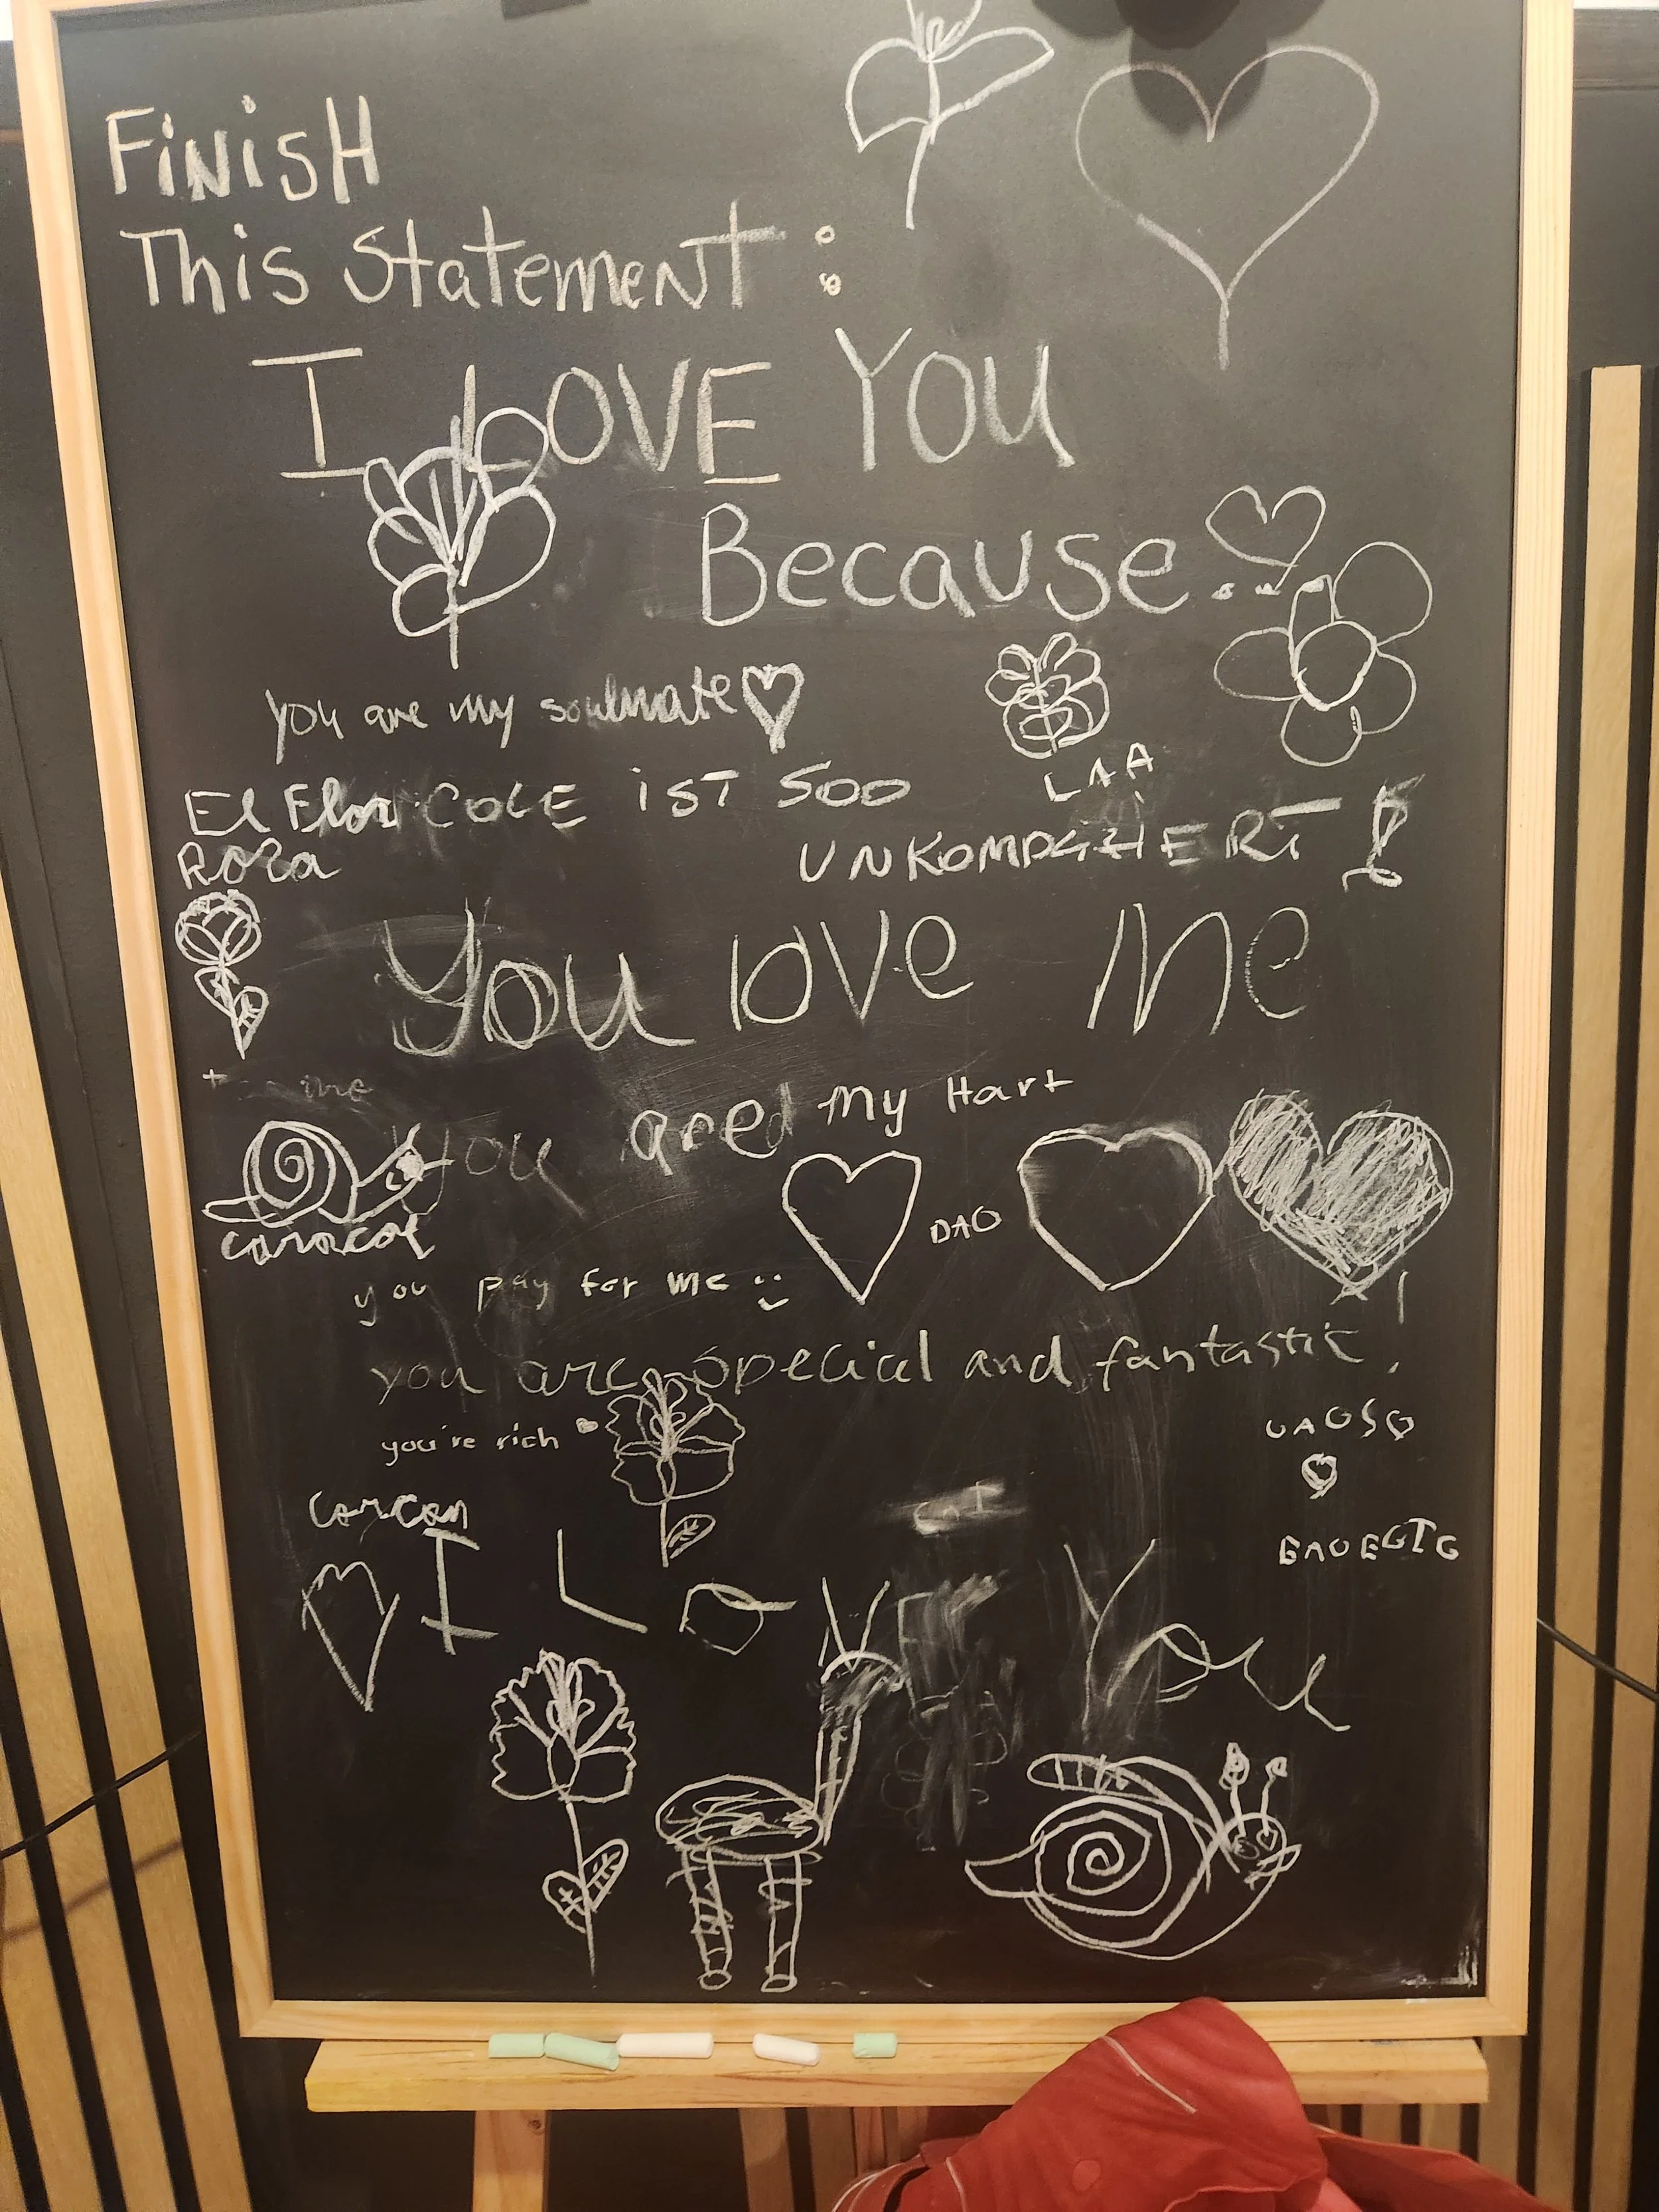 FiNisH
This Statement :
I LOVE YOU
Because...
you are my soulmate
LAA
El Flor COLE iST SOO
Roza
UNKOMPLIHERT
You love Me
+ me
You ared my Hart
DAO
caracol
you pay for me
you are special and fantastic,
you're rich
I L O Y
You